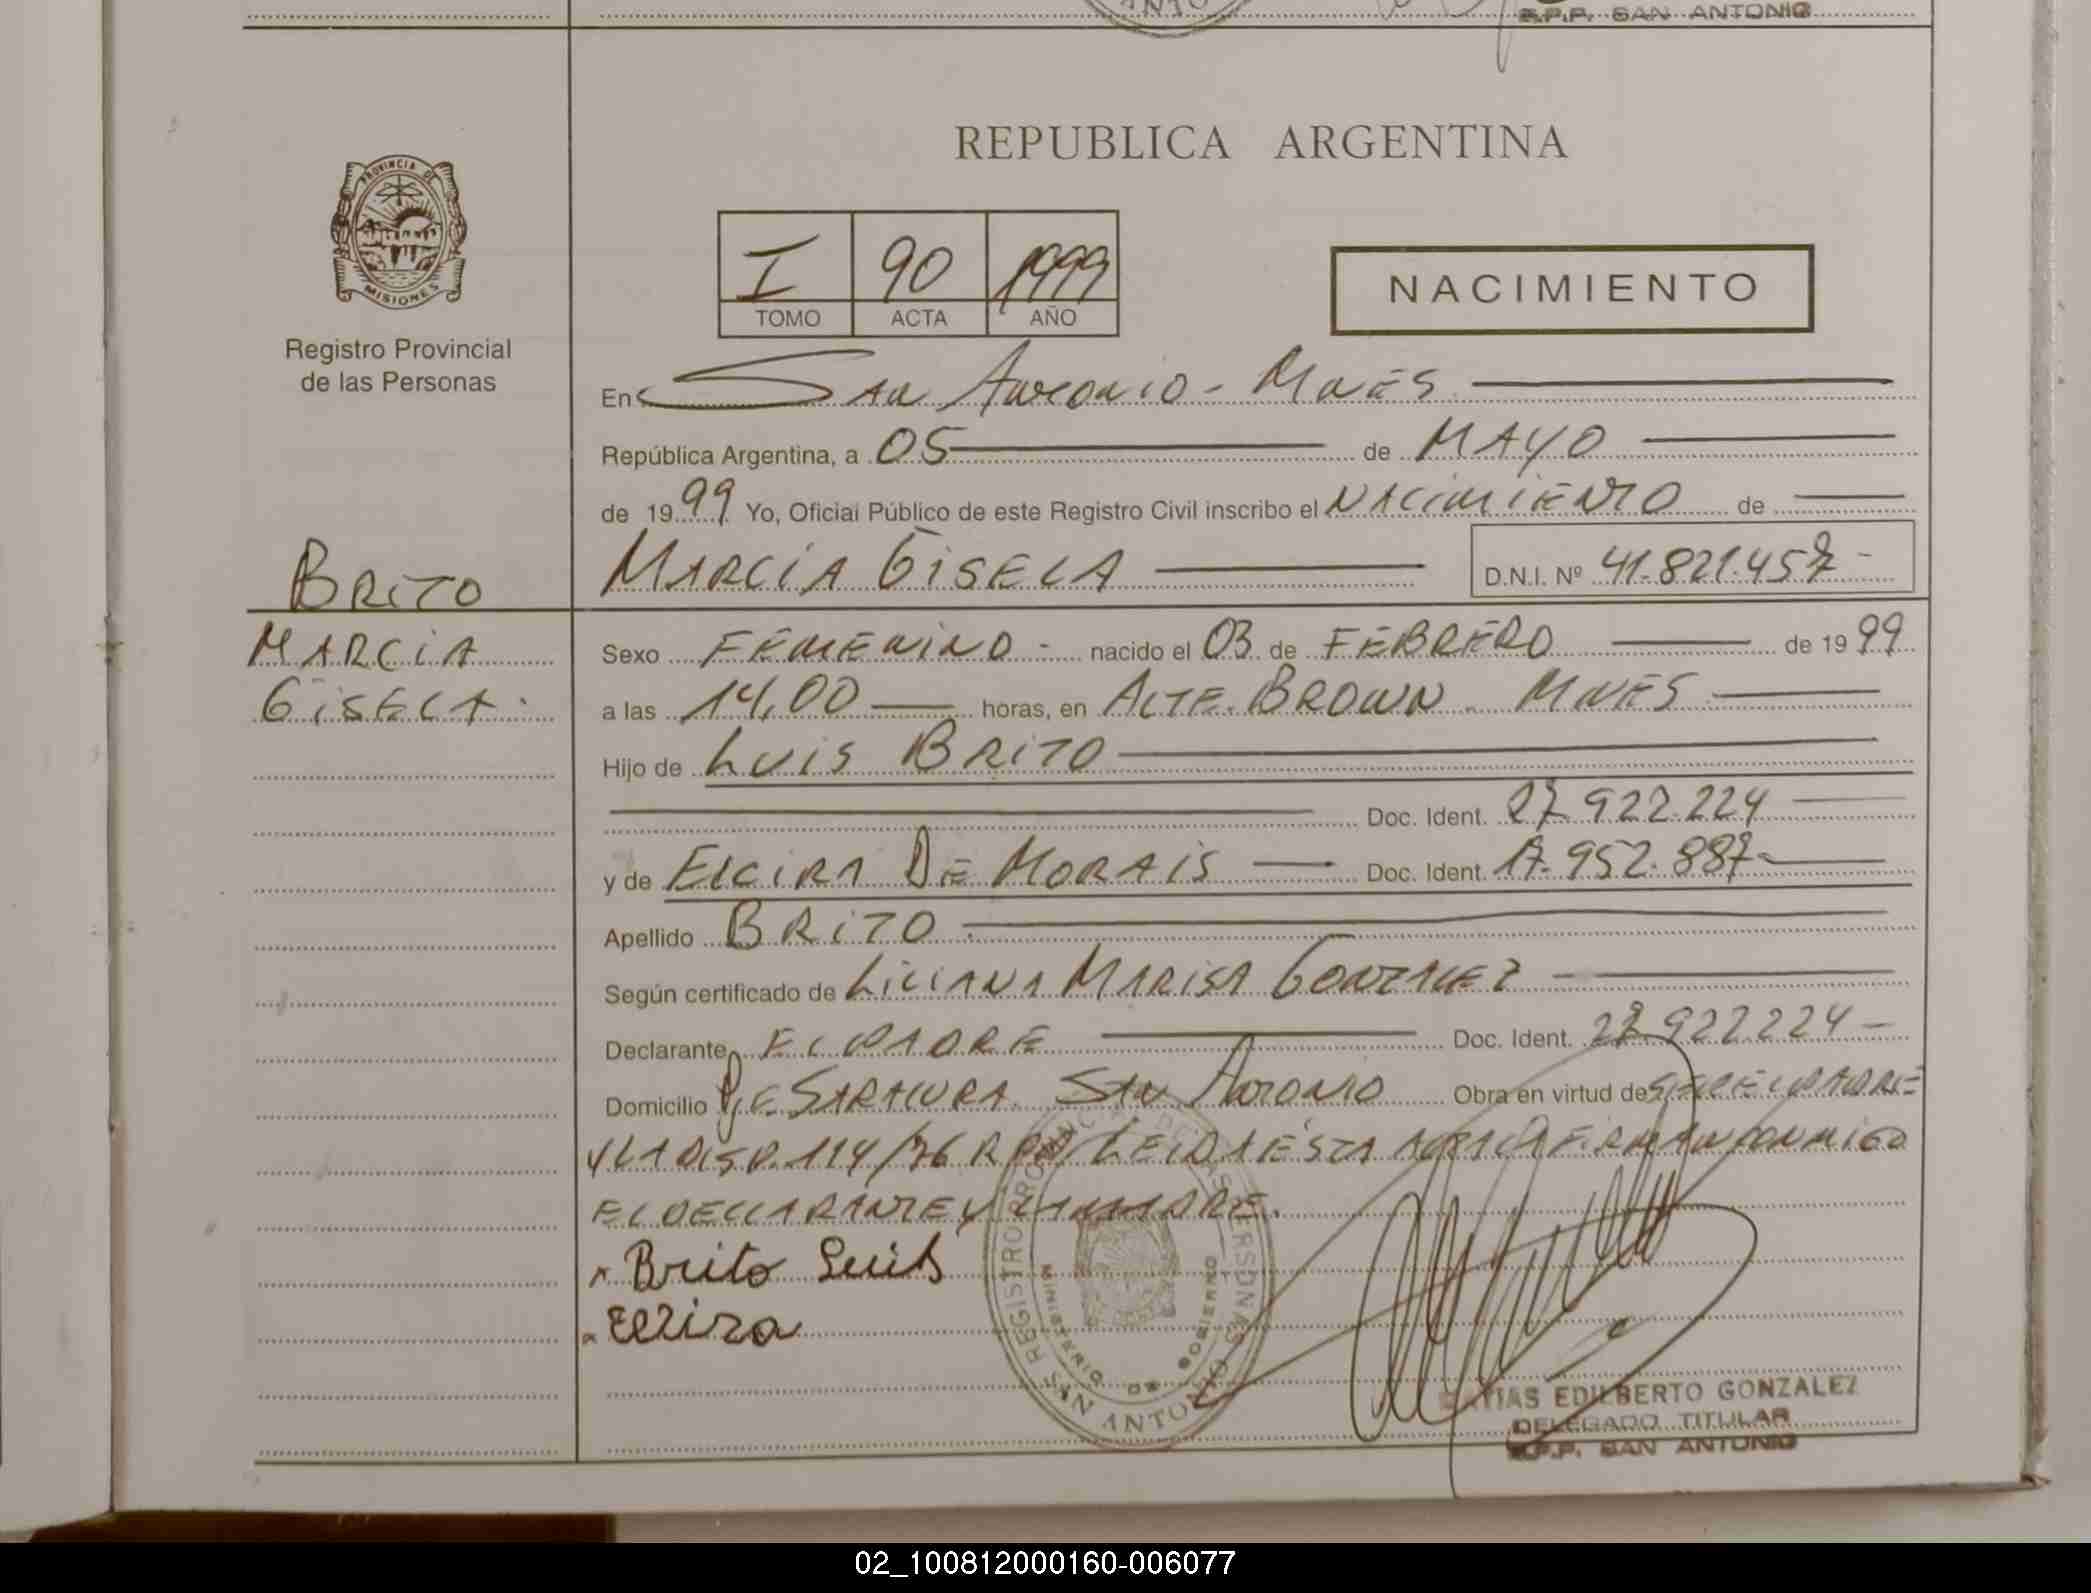 S.P.P. SAN ANTONIO
PROVINCIA DE
MISIONES
Registro Provincial
de las Personas
REPUBLICA ARGENTINA
I 90 1999
TOMO ACTA AÑO
NACIMIENTO
En SAN ANTONIO - MNES
República Argentina, a 05 de MAYO
de 1999 Yo, Oficial Público de este Registro Civil inscribo el NACIMIENTO de
BRITO
MARCIA GISELA
D.N.I. Nº 41.821.457 -
MARCIA
GISELA.
Sexo FEMENINO - nacido el 03 de FEBRERO de 1999
a las 14,00 horas, en ALTE. BROWN - MNES
Hijo de LUIS BRITO
Doc. Ident. 27.922.224
y de ELCIRA DE MORAIS Doc. Ident. 17.952.887
Apellido BRITO
Según certificado de LILIANA MARISA GONZALEZ
Declarante EL PADRE Doc. Ident. 27.922.224 -
Domicilio PJE. SARACURA SAN ANTONIO Obra en virtud de SER EL PADRE
Y LA DISP. 114/76 R.P.P. LEIDA ESTA ACTA LA FIRMAN CONMIGO
EL DECLARANTE Y LA MADRE.
x Brito Luis
x Elzira
MINISTERIO DE GOBIERNO
SAN ANTONIO
EDILBERTO GONZALEZ
DELEGADO TITULAR
S.P.P. SAN ANTONIO
02_100812000160-006077